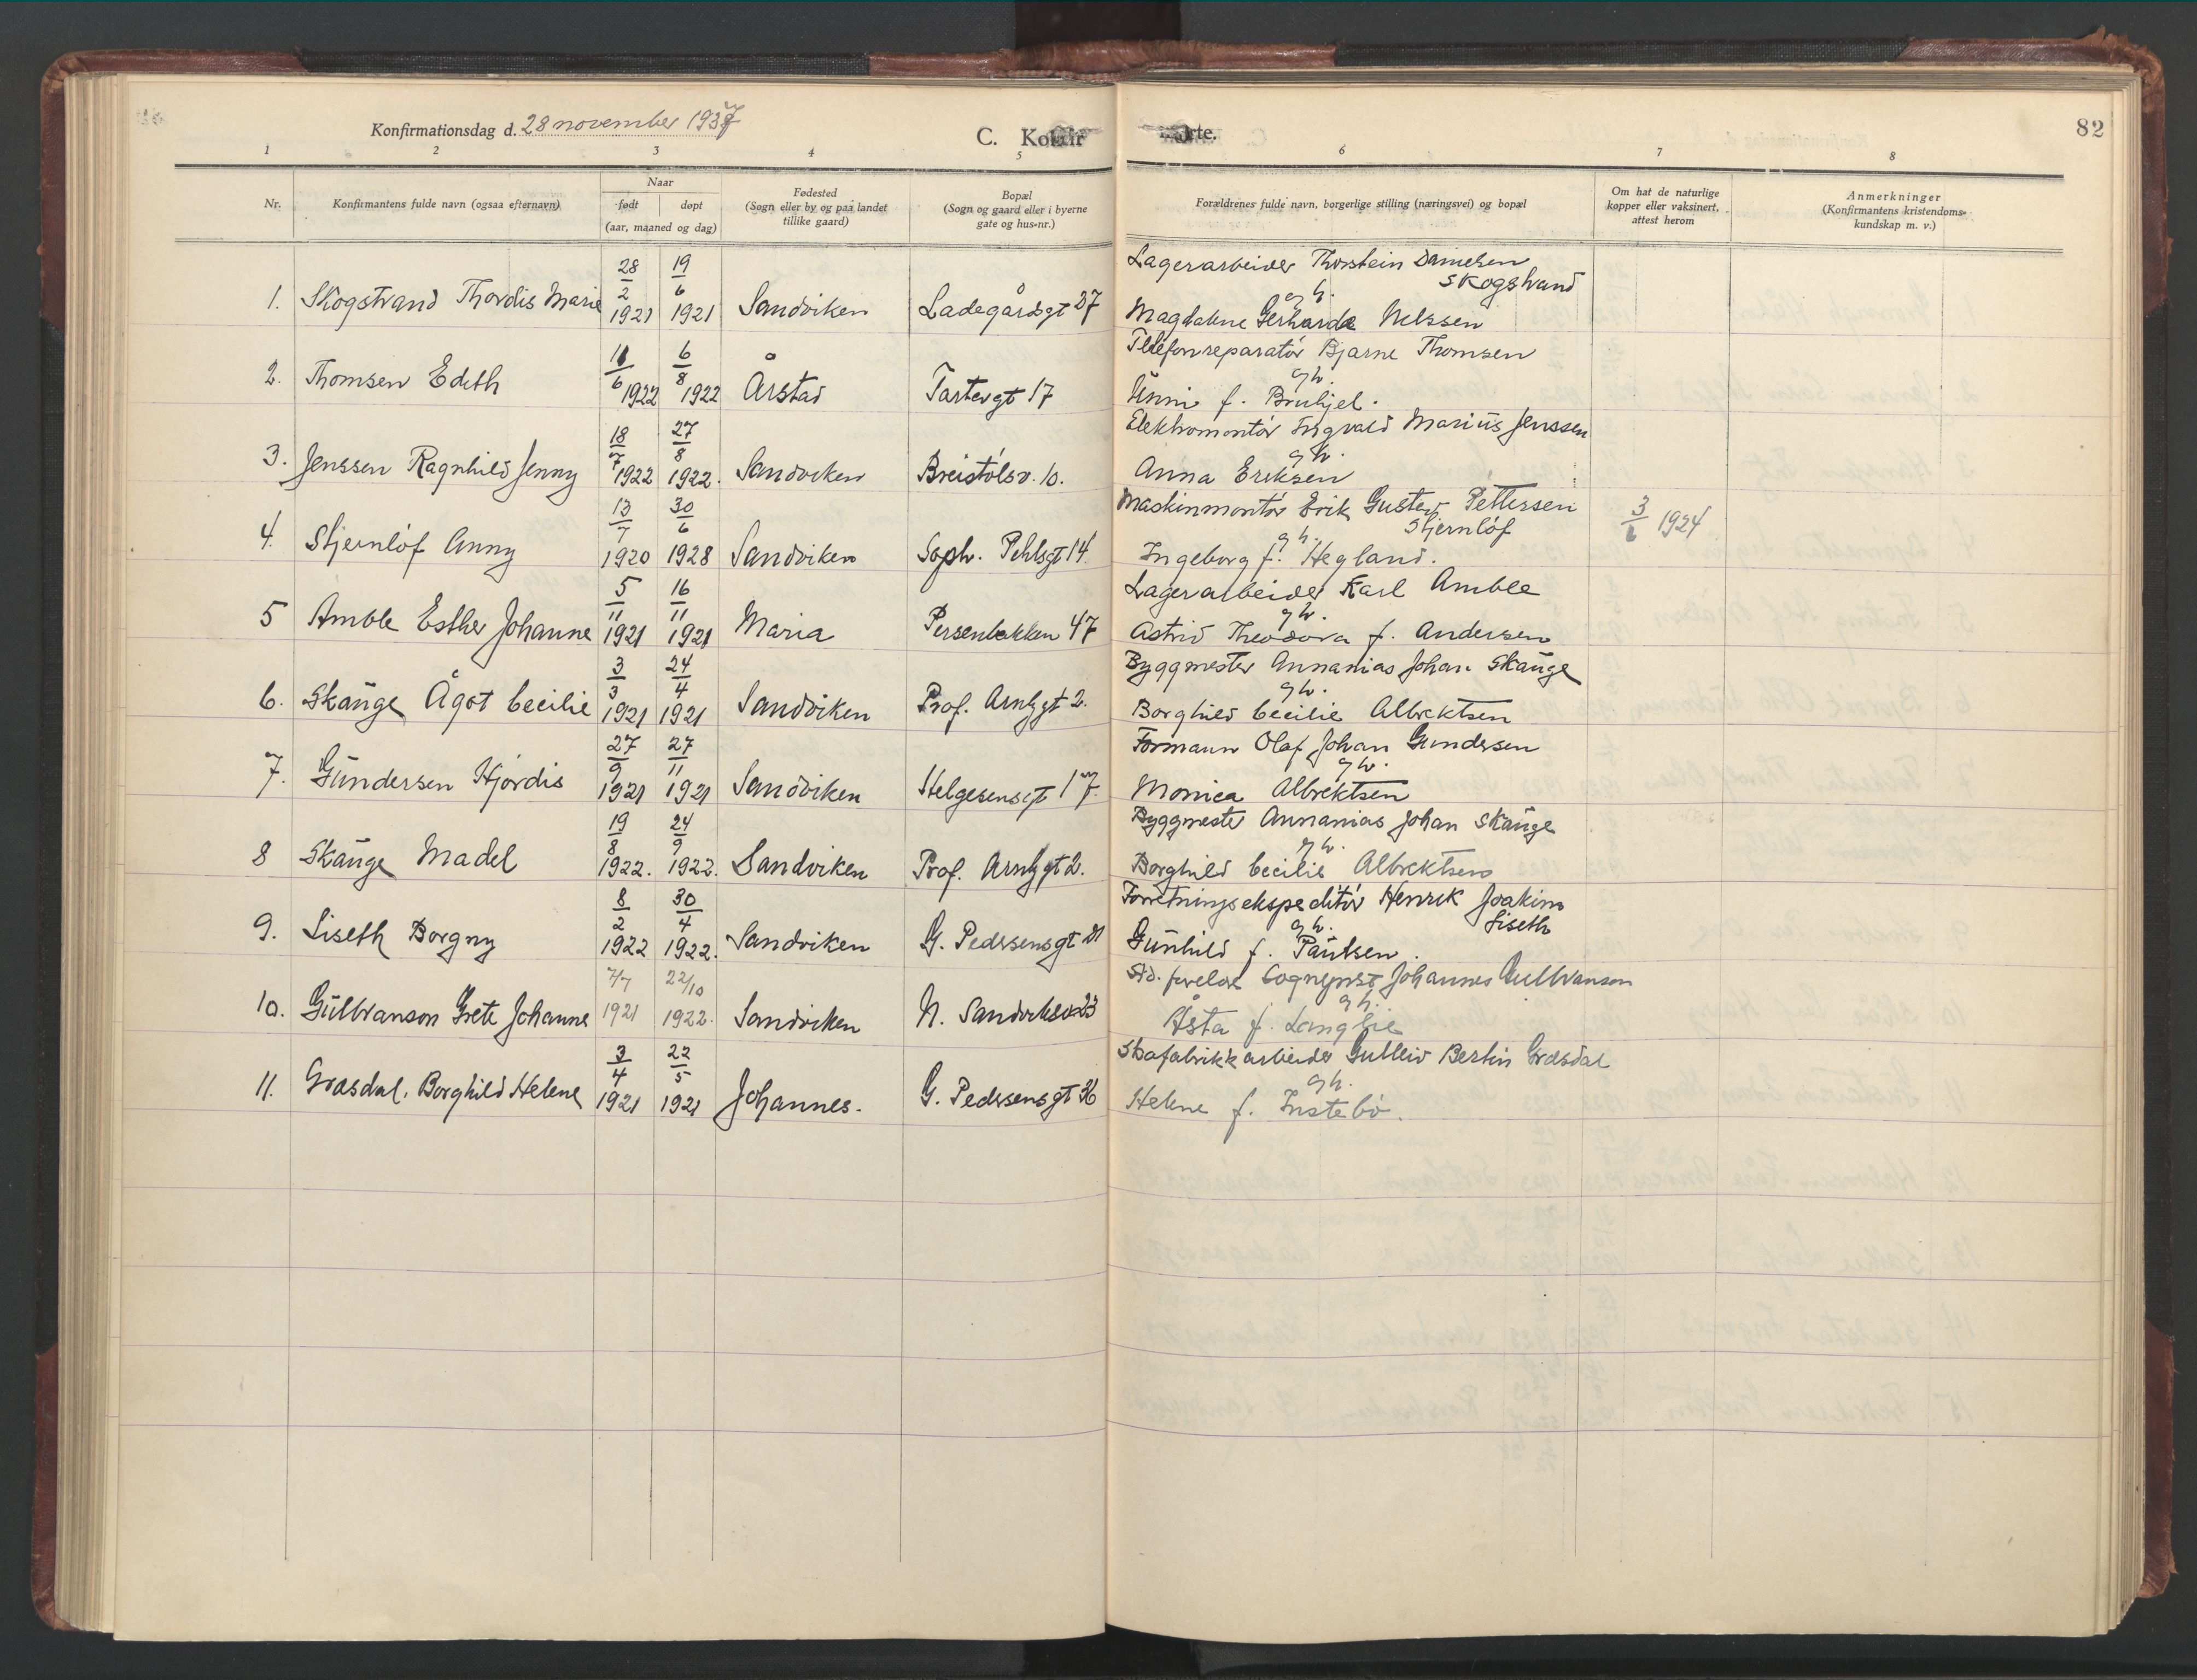 Konfirmationsdag d. 28 november 1937
C. Konfir
rte.
82
1 2 3 4 5 6 7 8
Nr.
Konfirmantens fulde navn (ogsaa efternavn)
Naar
født døpt
(aar, maaned og dag)
Fødested
(Sogn eller by og paa landet
tillike gaard)
Bopæl
(Sogn og gaard eller i byerne
gate og hus-nr.)
Forældrenes fulde navn, borgerlige stilling (næringsvei) og bopæl
Om hat de naturlige
kopper eller vaksinert,
attest herom
Anmerkninger
(Konfirmantens kristendoms-
kundskap m. v.)
1. Skogstrand Thordis Marie 28/2 1921 19/6 1921 Sandviken Ladegårdsgt 37
Lagerarbeider Thorstein Danielsen
Skogstrand
g h.
Magdalene Gerharda Nelssen
2. Thomsen Edith 11/6 1922 6/8 1922 Årstad Tartergt 17
Telefonreparatör Bjarne Thomsen
g h.
Unni f. Bruhjel.
3. Jenssen Ragnhild Jenny 18/7 1922 27/8 1922. Sandviken Breistølsv. 10.
Elektromontör Ingvald Marius Jenssen
g h.
Anna Eriksen
4. Stjernlöf Anny 13/7 1920 30/6 1928 Sandviken Soph. Pihlsgt 14
Maskinmontör Erik Gustav Pettersen
Stjernlöf
g h.
Ingeborg f. Hegland.
3/6 1924
5 Amble Esther Johanne 5/11 1921 16/11 1921 Maria Persenbakken 47
Lagerarbeider Karl Amble
g h.
Astrid Theodora f. Andersen
6. Skauge Ågot Cecilie 3/3 1921 24/4 1921 Sandviken Prof. Arnbgt 2.
Byggmester Annanias Johan Skauge
g h.
Borghild Cecilie Albrektsen
7. Gundersen Hjördis 27/9 1921 27/11 1921 Sandviken Helgesensgt 17.
Formann Olaf Johan Gundersen
g h.
Monica Albrektsen
8 Skauge Madel 19/8 1922. 24/9 1922. Sandviken Prof. Arnbgt 2.
Byggmester Annanias Johan Skauge
g h.
Borghild Cecilie Albrektsen
9. Liseth Borgny 8/2 1922 30/4 1922. Sandviken G. Pedersensgt 21
Forretningsekspeditör Henrik Joakim
Liseth
g h.
Gunhild f. Paulsen.
10. Gulbranson Grete Johanne 7/7 1921 22/10 1922. Sandviken N. Sandviksv 23
Sogneprest Johannes Gulbranson
g h.
Åsta f. Langlie
11. Græsdal. Borghild Helene 3/4 1921 22/5 1921 Johannes. G. Pedersensgt 36
Skofabrikkarbeider Gulleiv Bertin Græsdal
g h.
Helene f. Instebö.